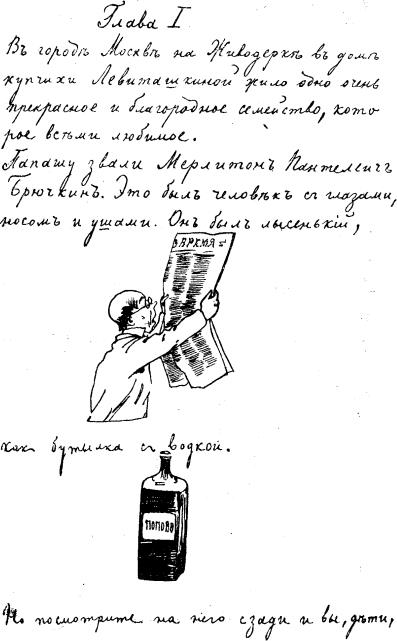 Глава I
Въ городѣ Москвѣ на Живодеркѣ въ домѣ
купчихи Левиташкиной жило одно очень
прекрасное и благородное семейство, кото
рое всѣми любимое.
Папашу звали Мерлитонъ Пантелеичъ
Брючкинъ. Это былъ человѣкъ съ глазами,
носомъ и ушами. Онъ былъ лысенькій,
ВРЕМЯ
какъ бутылка съ водкой.
ПОПОВЪ
Но посмотрите на него сзади и вы, дѣти,